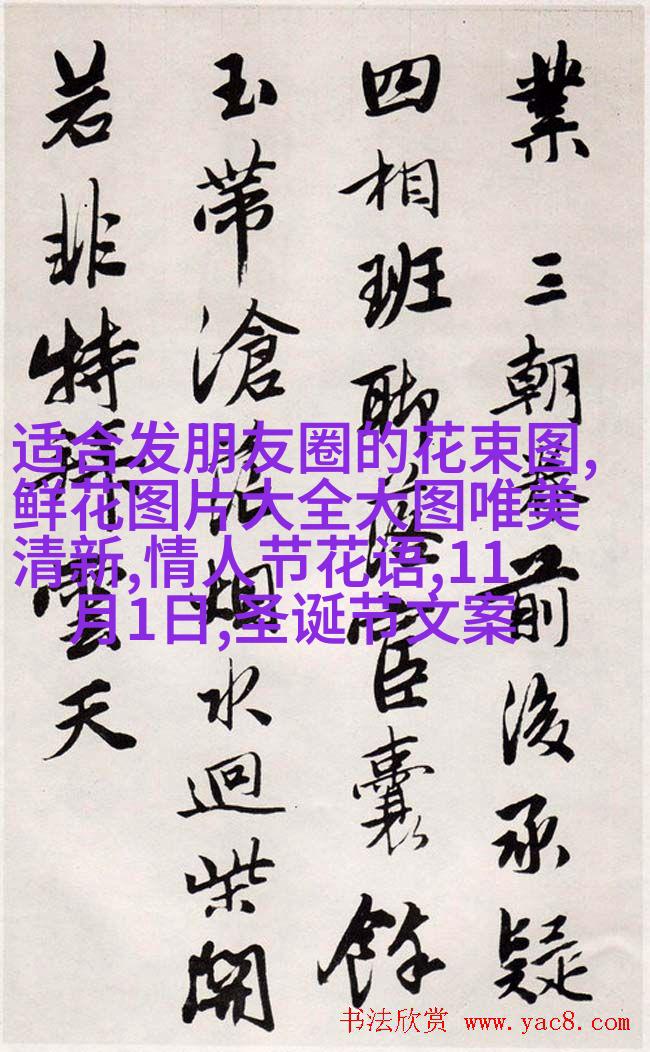 業 三朝前後承疑
四相班宦囊餘
玉帶滄浪烟水迴柴開
若非特雲天
适合发朋友圈的花束图,
鲜花图片大全大图唯美
清新,情人节花语,11
月1日,圣诞节文案
书法欣赏 www.yac8.com